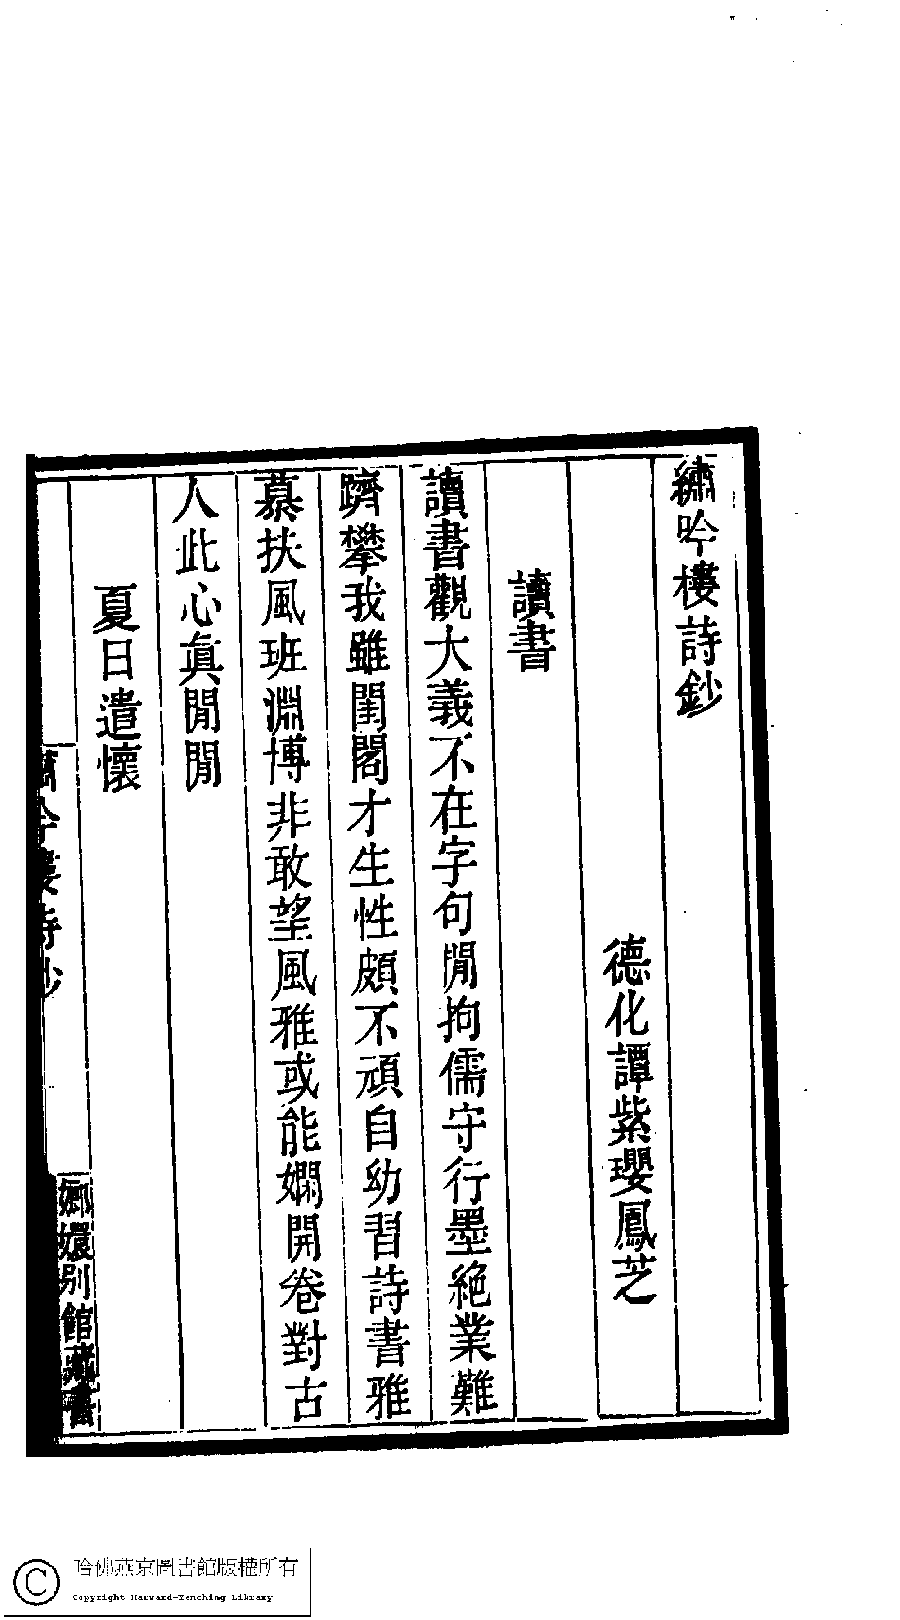 繡吟樓詩鈔
德化譚紫瓔鳳芝
讀書
讀書觀大義不在字句閒拘儒守行墨絕業難
躋攀我雖閨閣才生性頗不頑自幼習詩書雅
慕扶風班淵博非敢望風雅或能嫻開卷對古
人此心眞閒閒
夏日遣懷
繡吟樓詩鈔
嫏嬛別館藏書
哈佛燕京圖書館版權所有
Copyright Harvard-Yenching Library